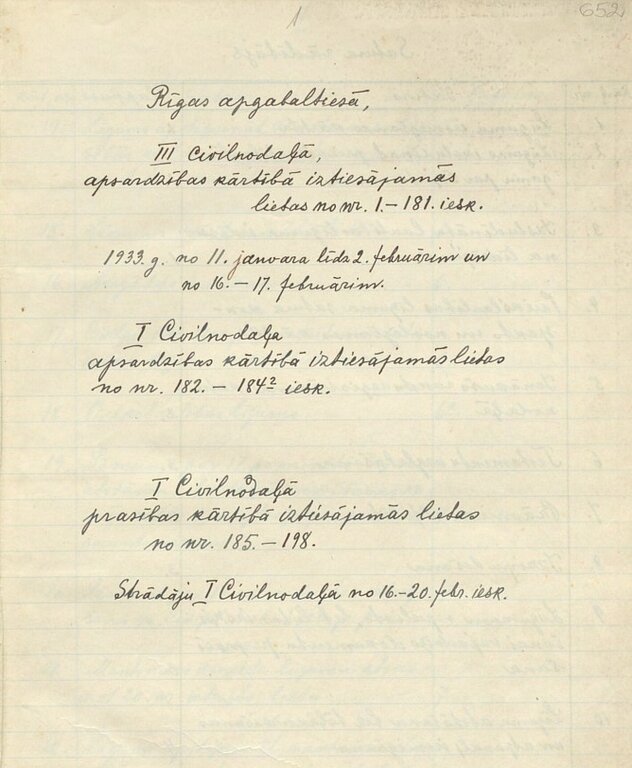 1
652
Rīgas apgabaltiesā,
III Civilnodaļā,
apsardzības kārtībā iztiesājamās
lietas no nr. 1. – 181. iesk.
1933. g. no 11. janvara līdz 2. februārim un
no 16. – 17. februārim.
I Civilnodaļa
apsardzības kārtībā iztiesājamās lietas
no nr. 182. – 184² iesk.
I Civilnodaļā
prasības kārtībā iztiesājamās lietas
no nr. 185. – 198.
Strādāju I Civilnodaļā no 16.-20. febr. iesk.